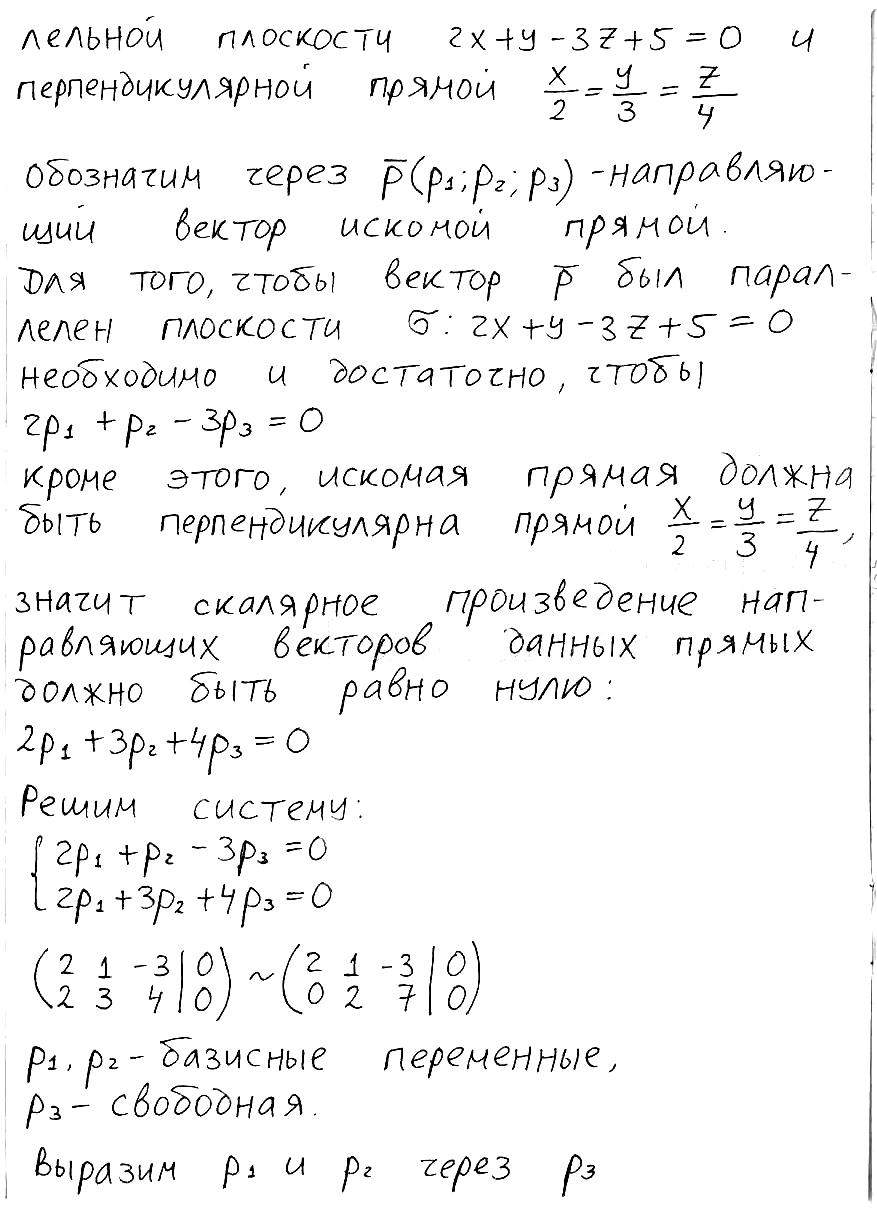 лельной плоскости 2x+y-3z+5=0 и
перпендикулярной прямой x/2=y/3=z/4
Обозначим через p̅(p₁;p₂;p₃)-направляю-
щий вектор искомой прямой.
Для того, чтобы вектор p̅ был парал-
лелен плоскости σ: 2x+y-3z+5=0
необходимо и достаточно, чтобы
2p₁+p₂-3p₃=0
Кроме этого, искомая прямая должна
быть перпендикулярна прямой x/2=y/3=z/4,
значит скалярное произведение нап-
равляющих векторов данных прямых
должно быть равно нулю:
2p₁+3p₂+4p₃=0
Решим систему:
{2p₁+p₂-3p₃=0
2p₁+3p₂+4p₃=0
(2 1 -3|0) ~ (2 1 -3|0)
(2 3 4|0) (0 2 7|0)
p₁, p₂- базисные переменные,
p₃- свободная.
Выразим p₁ и p₂ через p₃